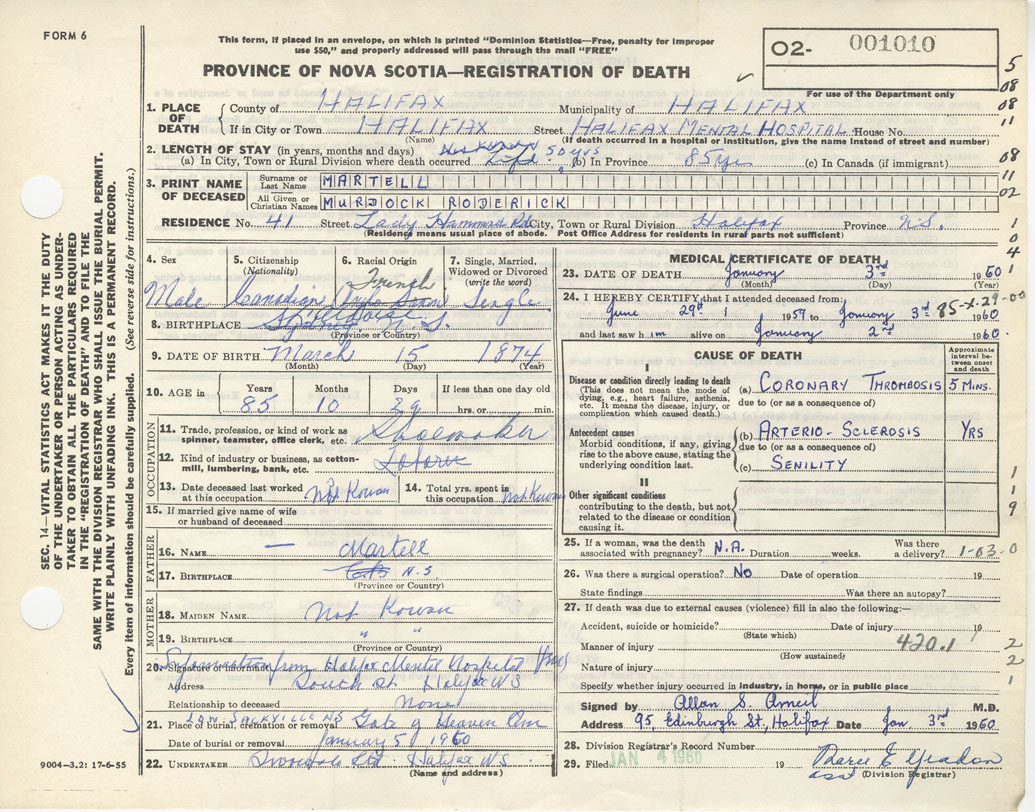 FORM 6
This form, if placed in an envelope, on which is printed "Dominion Statistics—Free, penalty for improper
use $50," and properly addressed will pass through the mail "FREE"
PROVINCE OF NOVA SCOTIA—REGISTRATION OF DEATH
O2- 001010
For use of the Department only
1. PLACE OF DEATH
County of HALIFAX Municipality of HALIFAX
If in City or Town HALIFAX Street HALIFAX MENTAL HOSPITAL House No.
(Name) (If death occurred in a hospital or institution, give the name instead of street and number)
2. LENGTH OF STAY (in years, months and days)
(a) In City, Town or Rural Division where death occurred Life 50 yrs (b) In Province 85 yrs (c) In Canada (if immigrant)
3. PRINT NAME OF DECEASED
Surname or Last Name MARTELL
All Given or Christian Names MURDOCK RODERICK
RESIDENCE No. 41 Street Lady Hammond Rd City, Town or Rural Division Halifax Province N.S.
(Residence means usual place of abode. Post Office Address for residents in rural parts not sufficient)
4. Sex
Male
5. Citizenship
(Nationality)
Canadian
6. Racial Origin
French
7. Single, Married, Widowed or Divorced
(write the word)
Single
8. BIRTHPLACE N.S.
(Province or Country)
9. DATE OF BIRTH March 15 1874
(Month) (Day) (Year)
10. AGE in Years Months Days If less than one day old
85 10 29 hrs. or min.
OCCUPATION
11. Trade, profession, or kind of work as
spinner, teamster, office clerk, etc. Shoemaker
12. Kind of industry or business, as cotton-
mill, lumbering, bank, etc.
13. Date deceased last worked
at this occupation Not Kowan
14. Total yrs. spent in
this occupation Not Kowan
15. If married give name of wife
or husband of deceased
FATHER
16. NAME — Martell
17. BIRTHPLACE N.S.
(Province or Country)
MOTHER
18. MAIDEN NAME Not Kowan
19. BIRTHPLACE " "
(Province or Country)
20. Signature of informant Information from Halifax Mental Hospital
Address South St Halifax N S
Relationship to deceased None
21. Place of burial, cremation or removal LOW. SACKVILLE NS Gate of Heaven Cem
Date of burial or removal January 5 1960
22. UNDERTAKER Halifax N S
(Name and address)
9004-3.2: 17-6-55
MEDICAL CERTIFICATE OF DEATH
23. DATE OF DEATH January 3rd 1960
(Month) (Day) (Year)
24. I HEREBY CERTIFY that I attended deceased from:
June 29th 1959 to January 3rd 1960 85-X-29-00
and last saw him alive on January 2nd 1960
CAUSE OF DEATH
Approximate interval between onset and death
I
Disease or condition directly leading to death
(This does not mean the mode of
dying, e.g., heart failure, asthenia,
etc. It means the disease, injury, or
complication which caused death.)
(a) CORONARY THROMBOSIS 5 MINS.
due to (or as a consequence of)
Antecedent causes
Morbid conditions, if any, giving
rise to the above cause, stating the
underlying condition last.
(b) ARTERIO-SCLEROSIS YRS
due to (or as a consequence of)
(c) SENILITY
II
Other significant conditions
contributing to the death, but not
related to the disease or condition
causing it.
25. If a woman, was the death
associated with pregnancy? N.A. Duration weeks. Was there
a delivery? 1-03-0
26. Was there a surgical operation? No Date of operation 19
State findings Was there an autopsy?
27. If death was due to external causes (violence) fill in also the following:—
Accident, suicide or homicide? Date of injury 19
(State which)
Manner of injury 420.1
(How sustained)
Nature of injury
Specify whether injury occurred in industry, in home, or in public place
Signed by Allan S. M.D.
Address 95, Edinburgh St, Halifax Date Jan 3rd 1960
28. Division Registrar's Record Number
29. Filed JAN 4 1960 19
(Division Registrar)
SEC. 14—VITAL STATISTICS ACT MAKES IT THE DUTY
OF THE UNDERTAKER OR PERSON ACTING AS UNDER-
TAKER TO OBTAIN ALL THE PARTICULARS REQUIRED
IN THE "REGISTRATION OF DEATH" AND TO FILE THE
SAME WITH THE DIVISION REGISTRAR WHO SHALL ISSUE THE BURIAL PERMIT.
WRITE PLAINLY WITH UNFADING INK. THIS IS A PERMANENT RECORD.
Every item of information should be carefully supplied. (See reverse side for instructions.)
5
08
11
08
11
02
1
0
4
1
1
1
9
2
2
1